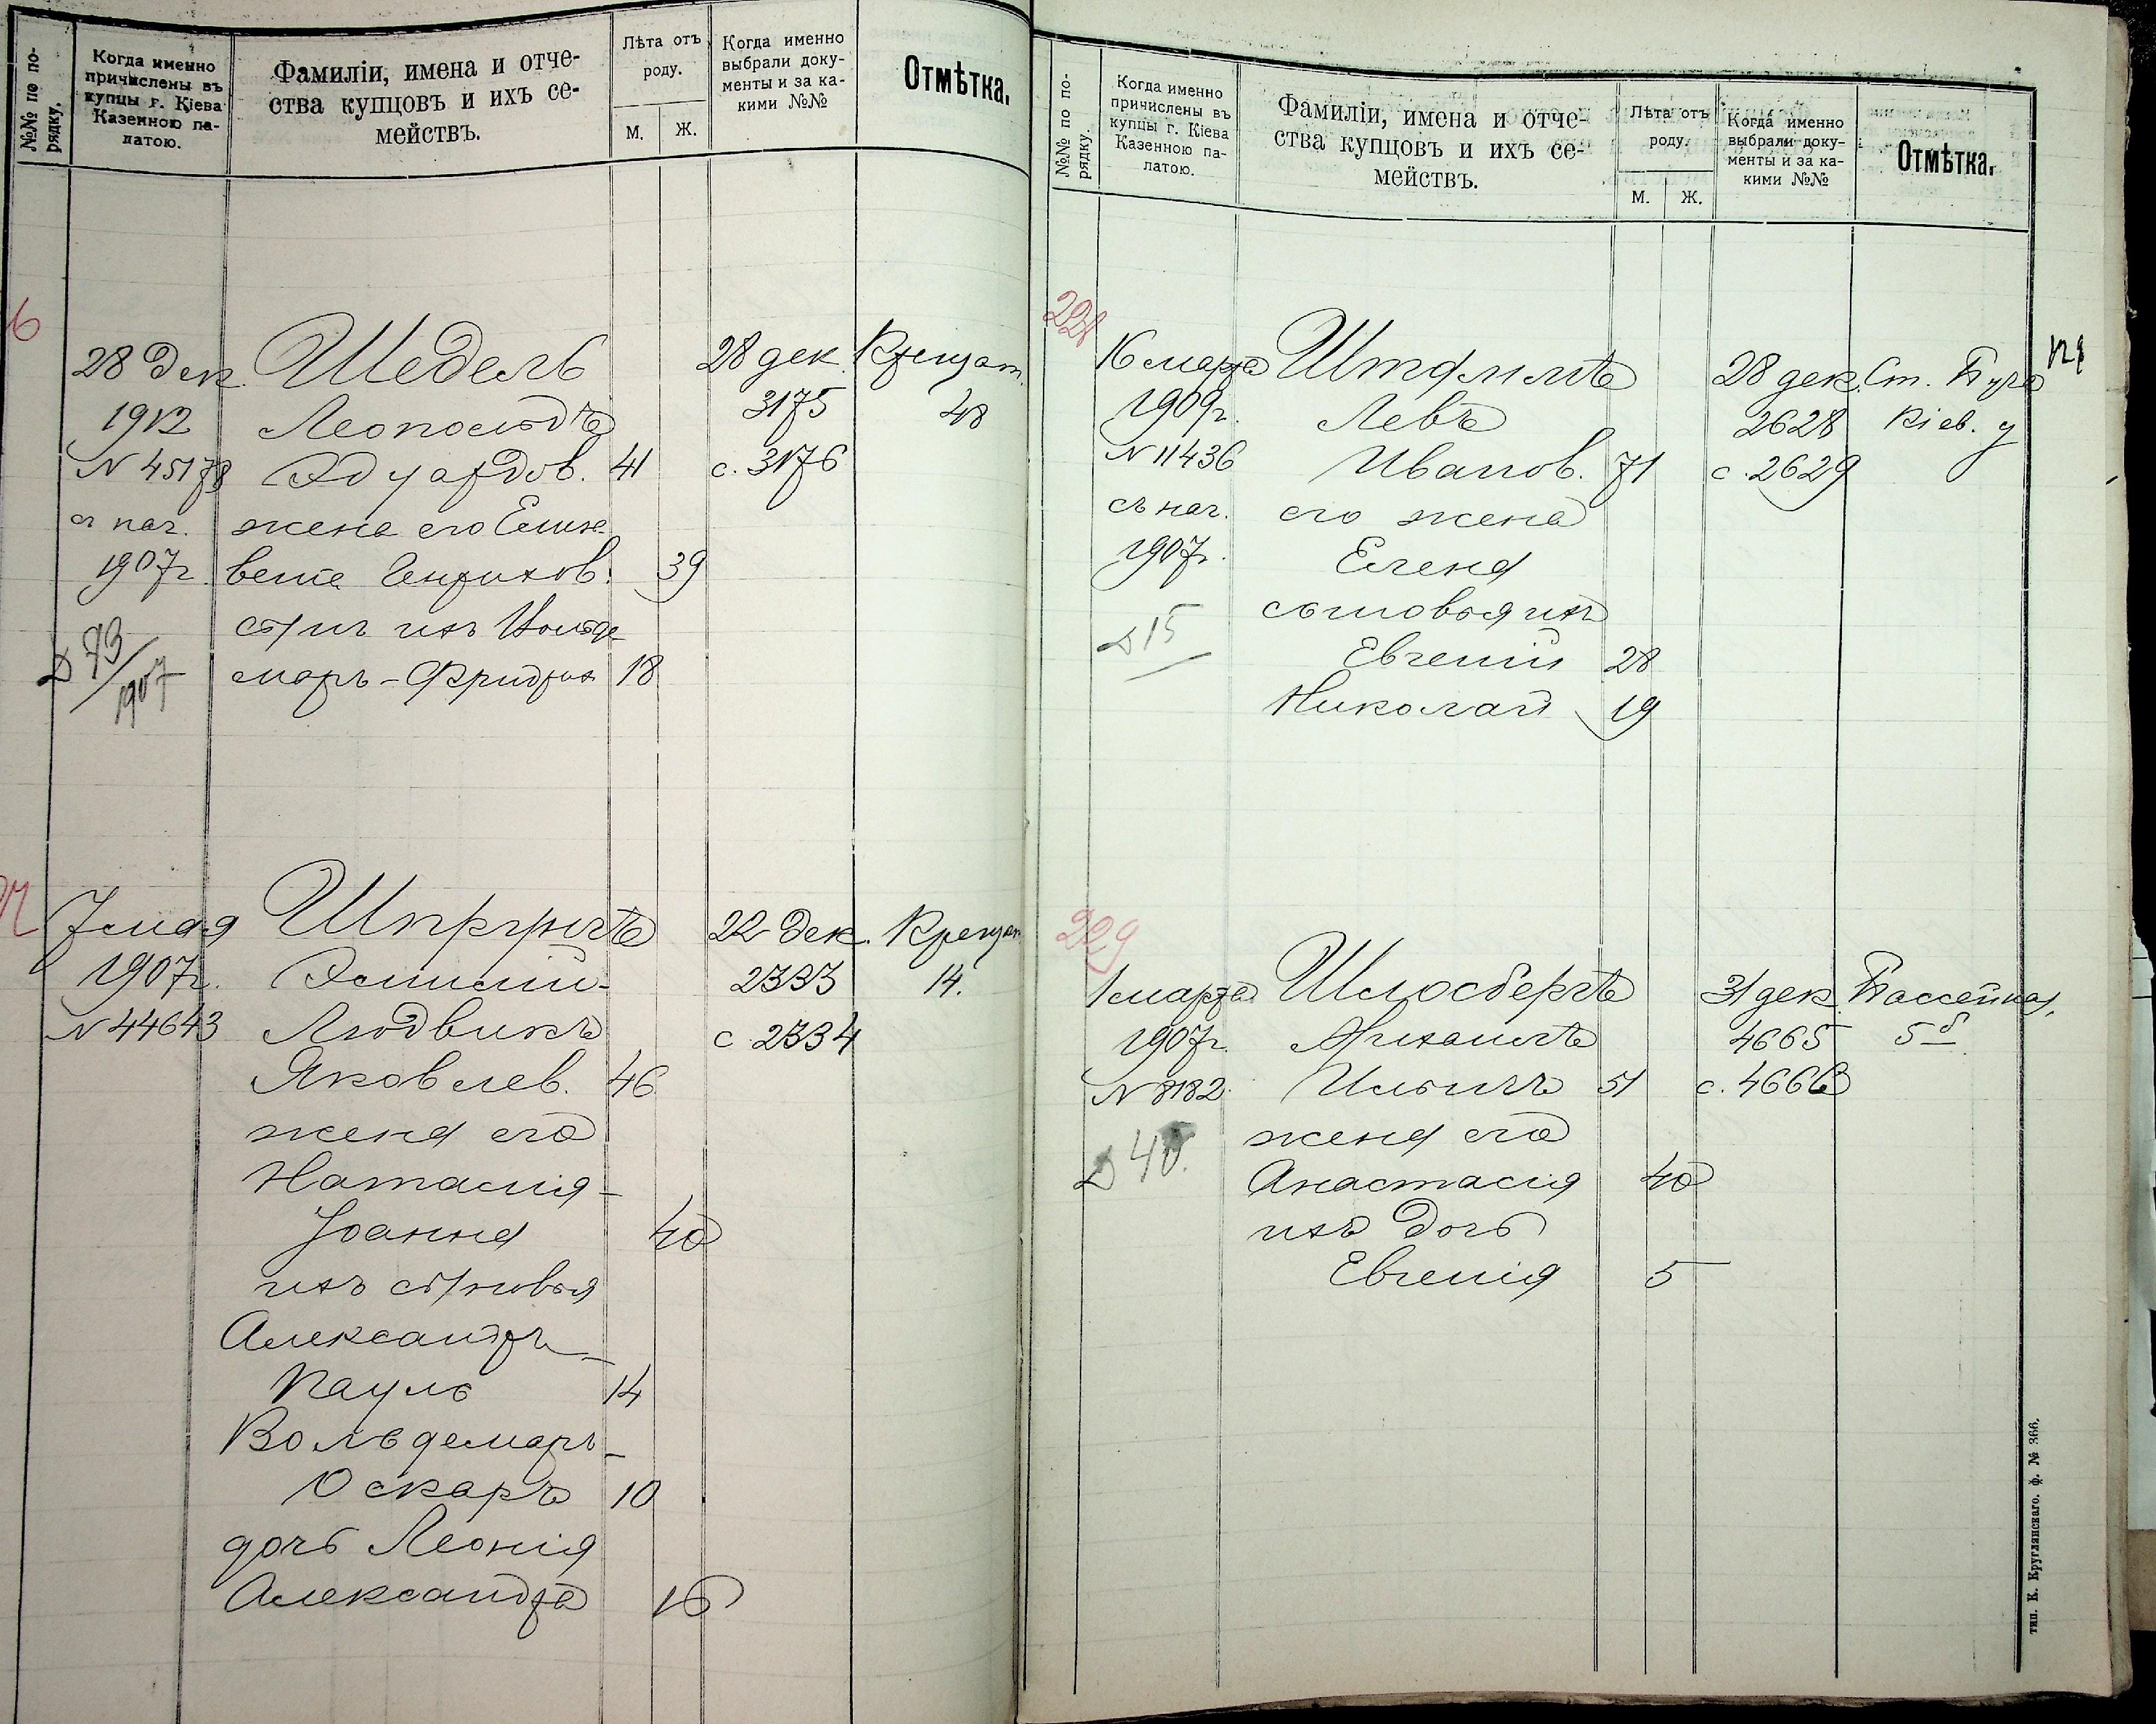 №№ по по-
рядку.
Когда именно
причислены въ
купцы г. Кіева
Казенною па-
латою.
Фамиліи, имена и отче-
ства купцовъ и ихъ се-
мействъ.
Лѣта отъ
роду.
М. Ж.
Когда именно
выбрали доку-
менты и за ка-
кими №№
Отмѣтка.
6
28 Дек. Шедель 28 дек. Крещат.
1912 Леопольдъ 3175 48
N 45178 Эдуардов. 41 с. 3176
съ нач. жена его Елиза-
1907 г. вета Генрихов. 39
сынъ ихъ Вольде-
Д 73/1907 маръ-Фридрих 18
7 мая 22 Дек. Крещат.
1907 г. Эмилій- 2333 14.
N 44643 Людвикъ с 2334
Яковлев. 46
жена его
Наталия-
Іоанна 40
ихъ сыновья
Александръ-
Пауль 14
Вольдемаръ-
Оскаръ 10
дочь Леонія
Александра 16
№№ по по-
рядку.
Когда именно
причислены въ
купцы г. Кіева
Казенною па-
латою.
Фамиліи, имена и отче-
ства купцовъ и ихъ се-
мействъ.
Лѣта отъ
роду.
М. Ж.
Когда именно
выбрали доку-
менты и за ка-
кими №№
Отмѣтка.
228
16 марта Штаммъ 28 дек. Ст. Буча
1909 г. Левъ 2628 Кіев. у
N 11436 Иванов. 71 с. 2629
съ нач. его жена
1907 г. Елена
сыновья ихъ
Д 15 Евгеній 28
Николай 19
229
1 марта Шлосбергъ 31 дек. Бассейная,
1907 г. Михаилъ 4665 5 б
N 8182 Ильичъ 51 с. 4666
жена его
Д 40. Анастасія 40
ихъ дочь
Евгенія 5
тип. К. Круглянскаго. ф. № 366.